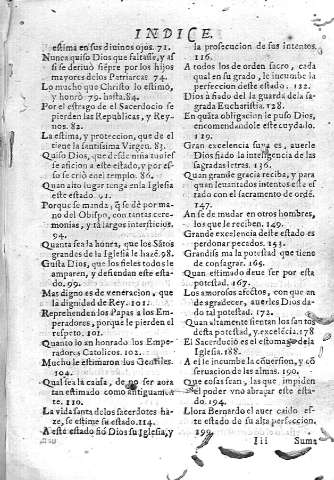 INDICE.
estima en sus diuinos ojos. 71.
Nunca quiso Dios que faltasse, y assi
se deriuò siẽpre por los hijos
mayores de los Patriarcas. 74.
Lo mucho que Christo lo estimò,
y honrò 79. hasta. 84.
Por el estrago de el Sacerdocio se
pierden las Republicas, y Reynos.
82.
La estima, y proteccion, que de el
tiene la santissima Virgen. 83.
Quiso Dios, que desde niña
se aficion a este estado, y por esso
se criò en el templo. 86.
Quan alto lugar tenga en la Iglesia
este estado. 91.
Porque se manda, q̃ se dè por mano
del Obispo, con tantas ceremonias,
y tã largos intersticios.
94.
Quanta sea la honra, que los Sãtos
grandes de la Iglesia le hazẽ. 98.
Gusta Dios, que los fieles todos le
amparen, y defiendan este estado.
99.
Mas digno es de veneracion, que
la dignidad de Rey. 101.
Reprehenden los Papas a los Emperadores,
porque le pierden el
respeto. 101.
Quanto lo an honrado los Emperadores
Catolicos. 102.
Mucho le estimaron los Gentiles.
104.
Qual sea la causa, de no ser aora
tan estimado como antiguamente.
110.
La vida santa de los sacerdotes haze,
se estime su estado. 114.
A este estado fiò Dios su Iglesia, y
la prosecucion de sus intentos.
116.
A todos los de orden sacro, cada
qual en su grado, le incumbe la
perfeccion deste estado. 122.
Dios à fiado del la guarda de la sagrada
Eucharistia. 128.
En quãta obligacion le puso Dios,
encomendandole este cuydado.
129.
Gran excelencia suya es, auerle
Dios fiado la inteligencia de las
sagradas letras. 136.
Quan grande gracia reciba, y para
quan leuantados intentos este estado
con el sacramento de ordẽ.
147.
An se de mudar en otros hombres,
los que le reciben. 149.
Grande excelencia deste estado es
perdonar pecados. 153.
Grandissima la potestad que tiene
de consagrar. 165.
Quan estimado deue ser por esta
potestad. 167.
Los amorosos afectos, con que an
de agradecer, auerles Dios dado
tal potestad. 172.
Quan altamente sientan los santos
desta potestad, y excelẽcia. 178
El Sacerdocio es el estomago de la
Iglesia. 188.
A el le incumbe la cõuersion, y cõseruacion
de las almas. 190.
Que cosas sean, las que impiden
el poder vno abraçar este estado.
194.
Llora Bernardo el auer caido este
estado de su alta perfeccion.
199.
Iii
Suma